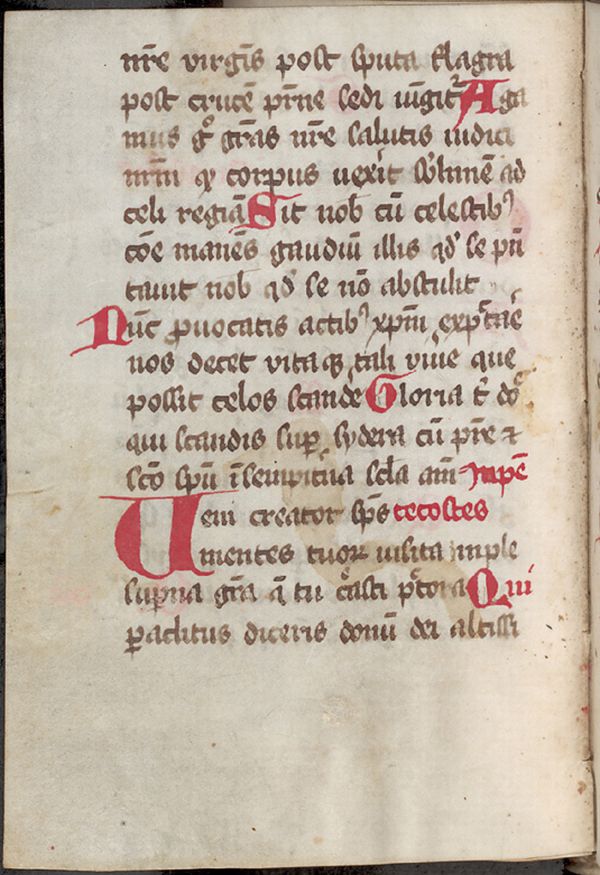 nr̄e virgīs post sputa flagra
post crucē pr̄ne sedi iūgit᷑ Aga
mus gͦ gr̄as nr̄e salutis iudici
nr̄m qͥ corpus uexit sb̓limē ad
celi regiā Sit nob̄ cū celestibꝰ
cōe manēs gaudiū illis qd̓ se p̄ū
tauit nob̄ qd̓ se nō abstulit
Nūc ꝓuocatis actibꝰ xp̄m exp̄ctāē
nos decet vitaqꝫ tali viūe que
possit celos scandē Gloria t̄ dō
qui scandis suꝑ sydera cū pr̄e ⁊
scō spū ī sempit̄na scl̄a am̄ Inpē
Ueni creator sp̄s tecostes
mentes tuoꝝ uisita imple
suꝑna gr̄a q̄ tu c̓asti p̄ctora Qui
ꝑaclitus diceris donū dei altissi